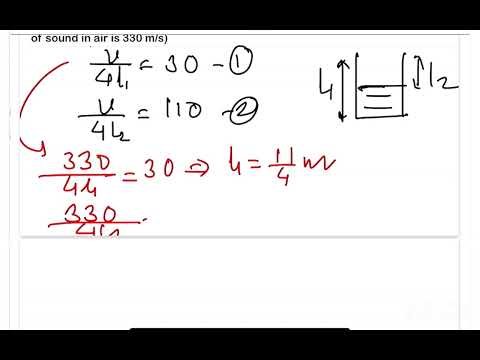 of sound in air is 330 m/s)
v/4l₁ = 30 - ①
v/4l₂ = 110 - ②
l₁ l₂
330/4l₁ = 30 ⇒ l₁ = 11/4 m
330/4l₂ =